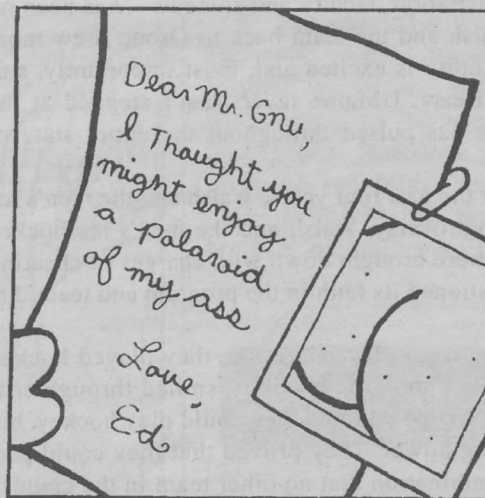 Dear Mr. Gnu,
I Thought you
might enjoy
a Polaroid
of my ass
Love
Ed